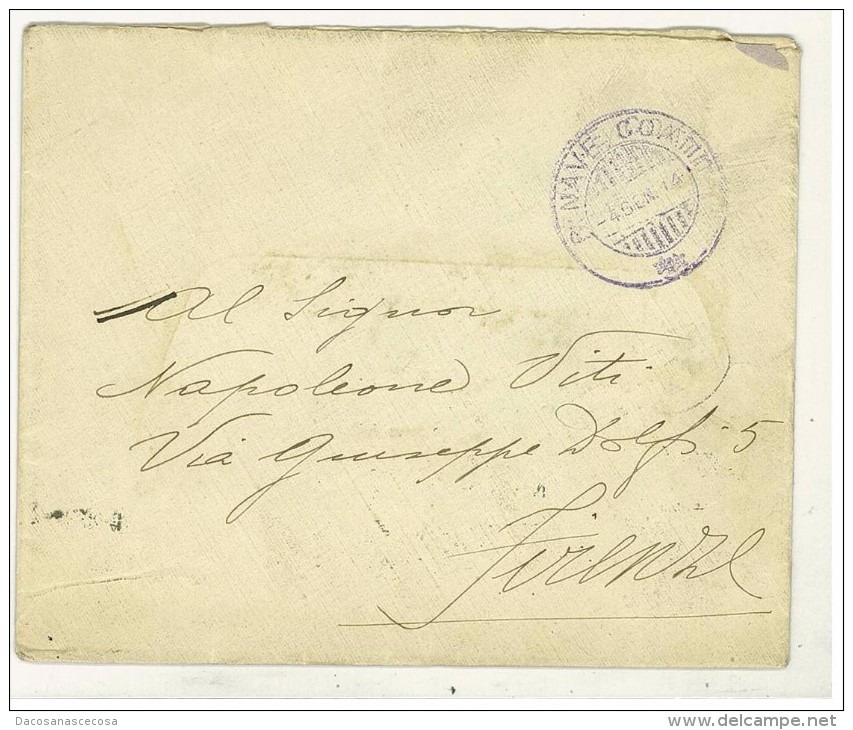 R. NAVE COMM
-4 GEN. 14
Al Signor
Napoleone Viti
Via Giuseppe Dolfi 5
Firenze
Dacosanascecosa
www.delcampe.net